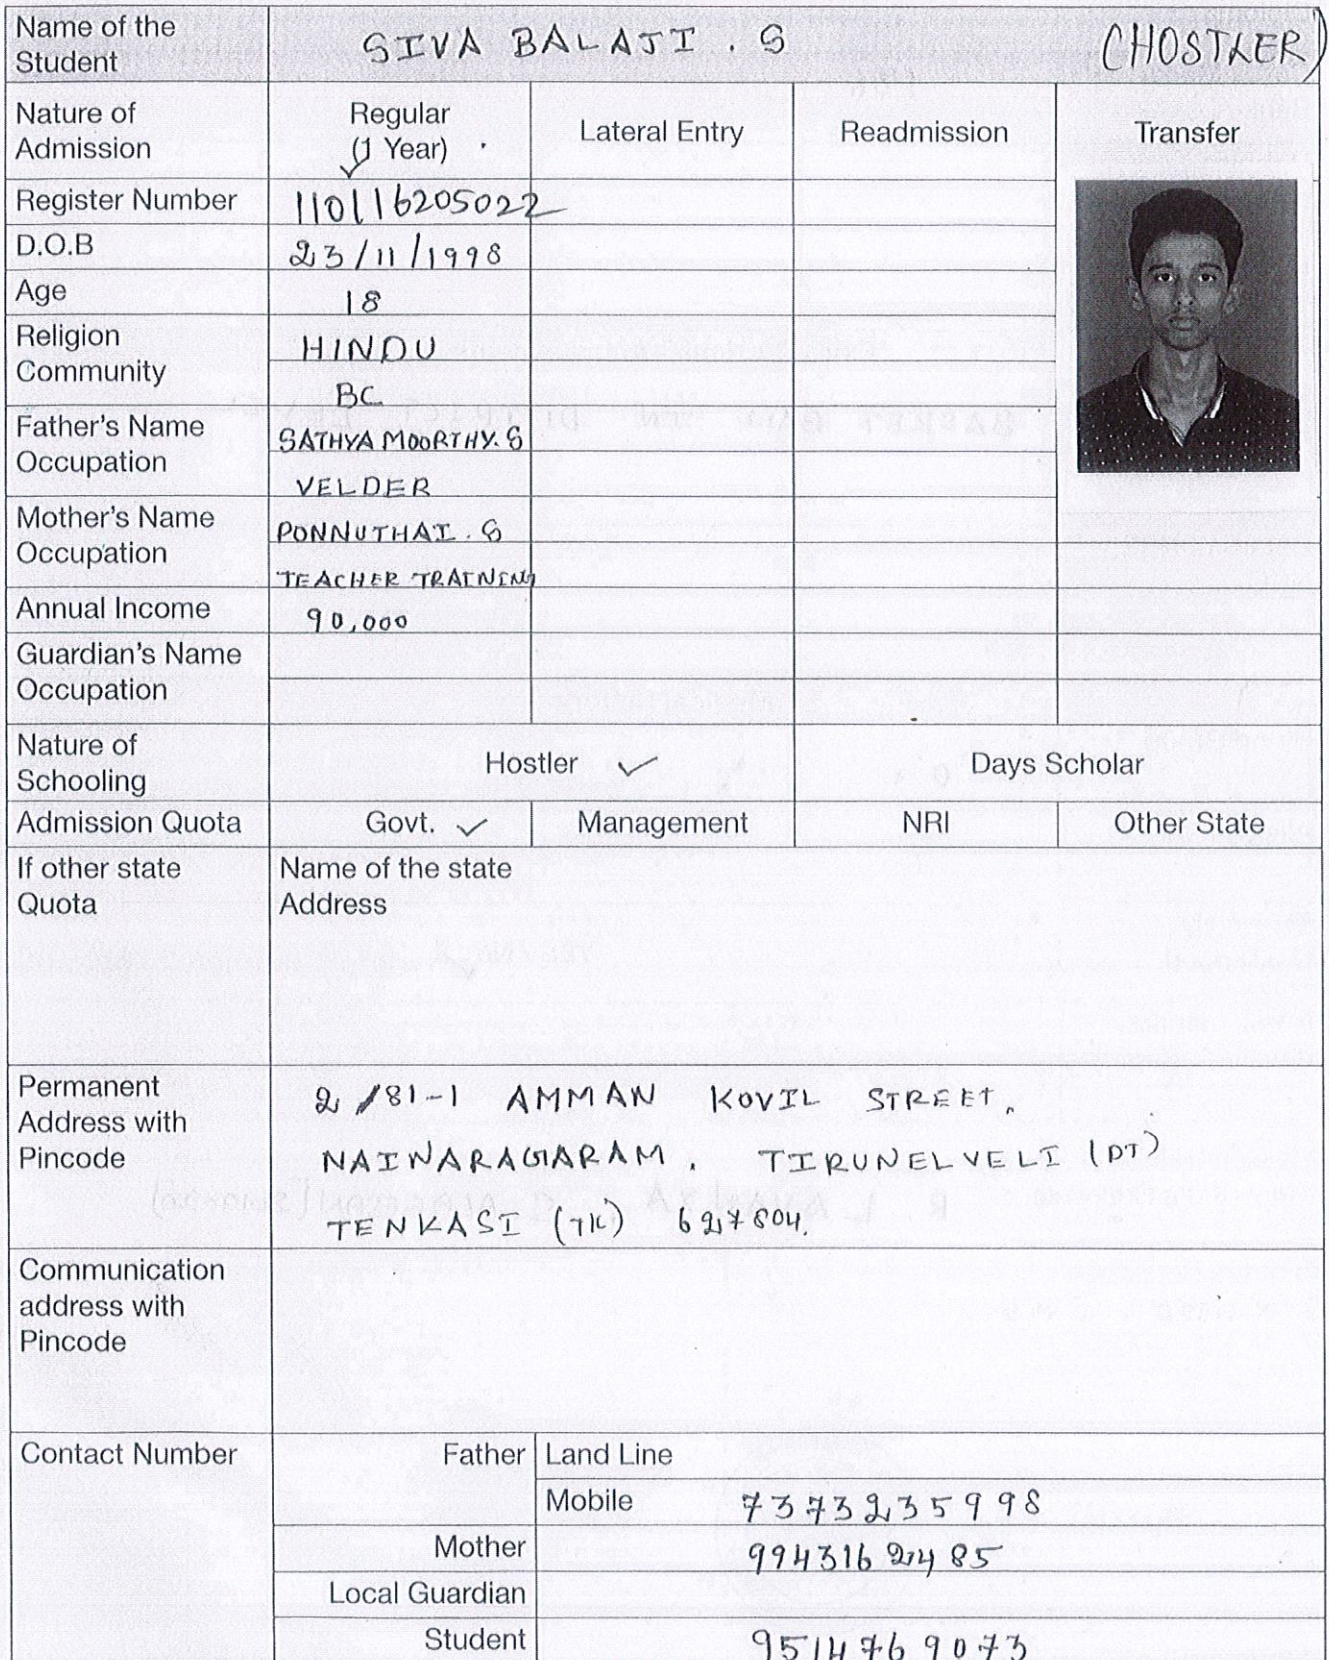 Name of the Student SIVA BALAJI . S (HOSTLER)
Nature of Admission Regular (1 Year) Lateral Entry Readmission Transfer
Register Number 110116205022
D.O.B 23/11/1998
Age 18
Religion HINDU
Community BC
Father's Name SATHYA MOORTHY. S
Occupation VELDER
Mother's Name PONNUTHAI . S
Occupation TEACHER TRAINING
Annual Income 90,000
Guardian's Name
Occupation
Nature of Schooling Hostler ✓ Days Scholar
Admission Quota Govt. ✓ Management NRI Other State
If other state Name of the state
Quota Address
Permanent 2/81-1 AMMAN KOVIL STREET,
Address with NAINARAGARAM. TIRUNELVELI (DT)
Pincode TENKASI (TK) 627804.
Communication
address with
Pincode
Contact Number Father Land Line
Mobile 7373235998
Mother 9943162485
Local Guardian
Student 9514769073